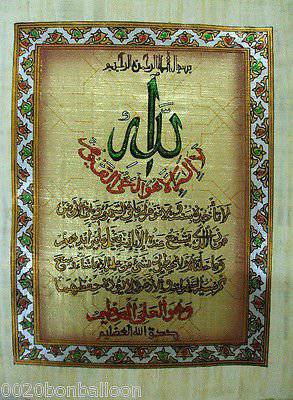 بسم الله الرحمن الرحيم
الله
لا إله إلا هو الحي القيوم
لا تأخذه سنة ولا نوم له ما في السموات وما في الأرض
من ذا الذي يشفع عنده إلا بإذنه يعلم ما بين أيديهم
وما خلفهم ولا يحيطون بشيء من علمه إلا بما شاء وسع
كرسيه السموات والأرض ولا يؤده حفظهما
وهو العلي العظيم
صدق الله العظيم
0020bonballoon